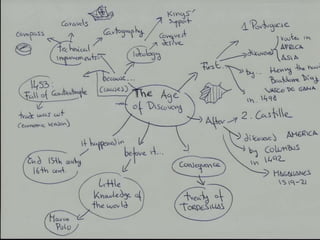 Caravels
Cartography
Kings'
support
compass
Technical
improvements
Ideology
conquest
desire
1. Portuguese
routes in
AFRICA
ASIA
First
discovered
by... Henry the
VASCO DE GAMA
in 1498
1453:
Fall of Constantinople
because...
(causes)
The Age
of Discovery
trade was cut
(economic reason)
After
2. Castille
discovered AMERICA
by COLUMBUS
in 1492
MAGALLANES
1519-21
it happened in
End 15th century
16th cent.
before it...
Consequence
Little
Knowledge of
the world
Treaty of
TORDESILLAS
Marco
Polo